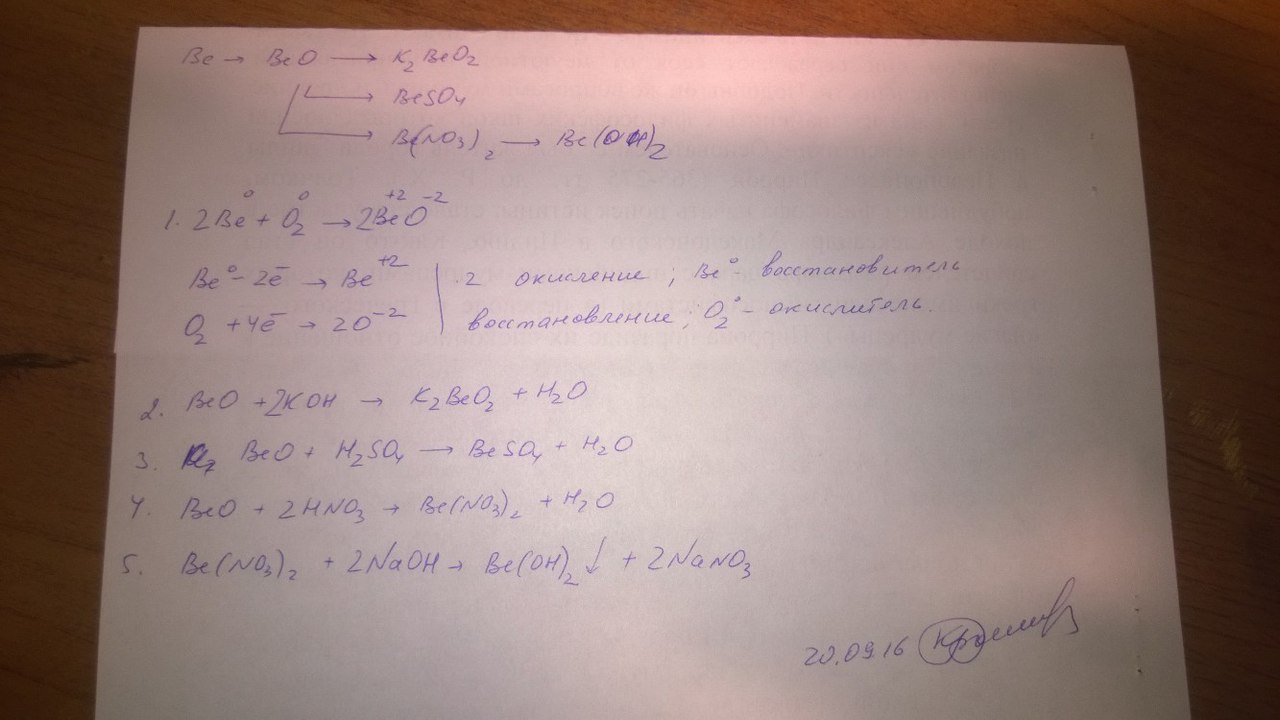 Be → BeO → K₂BeO₂
→ BeSO₄
→ Be(NO₃)₂ → Be(OH)₂
1. 2Be⁰ + O₂⁰ → 2Be⁺²O⁻²
Be⁰ - 2ē → Be⁺² | 2 окисление ; Be⁰ - восстановитель
O₂ + 4ē → 2O⁻² | восстановление ; O₂⁰ - окислитель.
2. BeO + 2KOH → K₂BeO₂ + H₂O
3. BeO + H₂SO₄ → BeSO₄ + H₂O
4. BeO + 2HNO₃ → Be(NO₃)₂ + H₂O
5. Be(NO₃)₂ + 2NaOH → Be(OH)₂↓ + 2NaNO₃
20.09.16